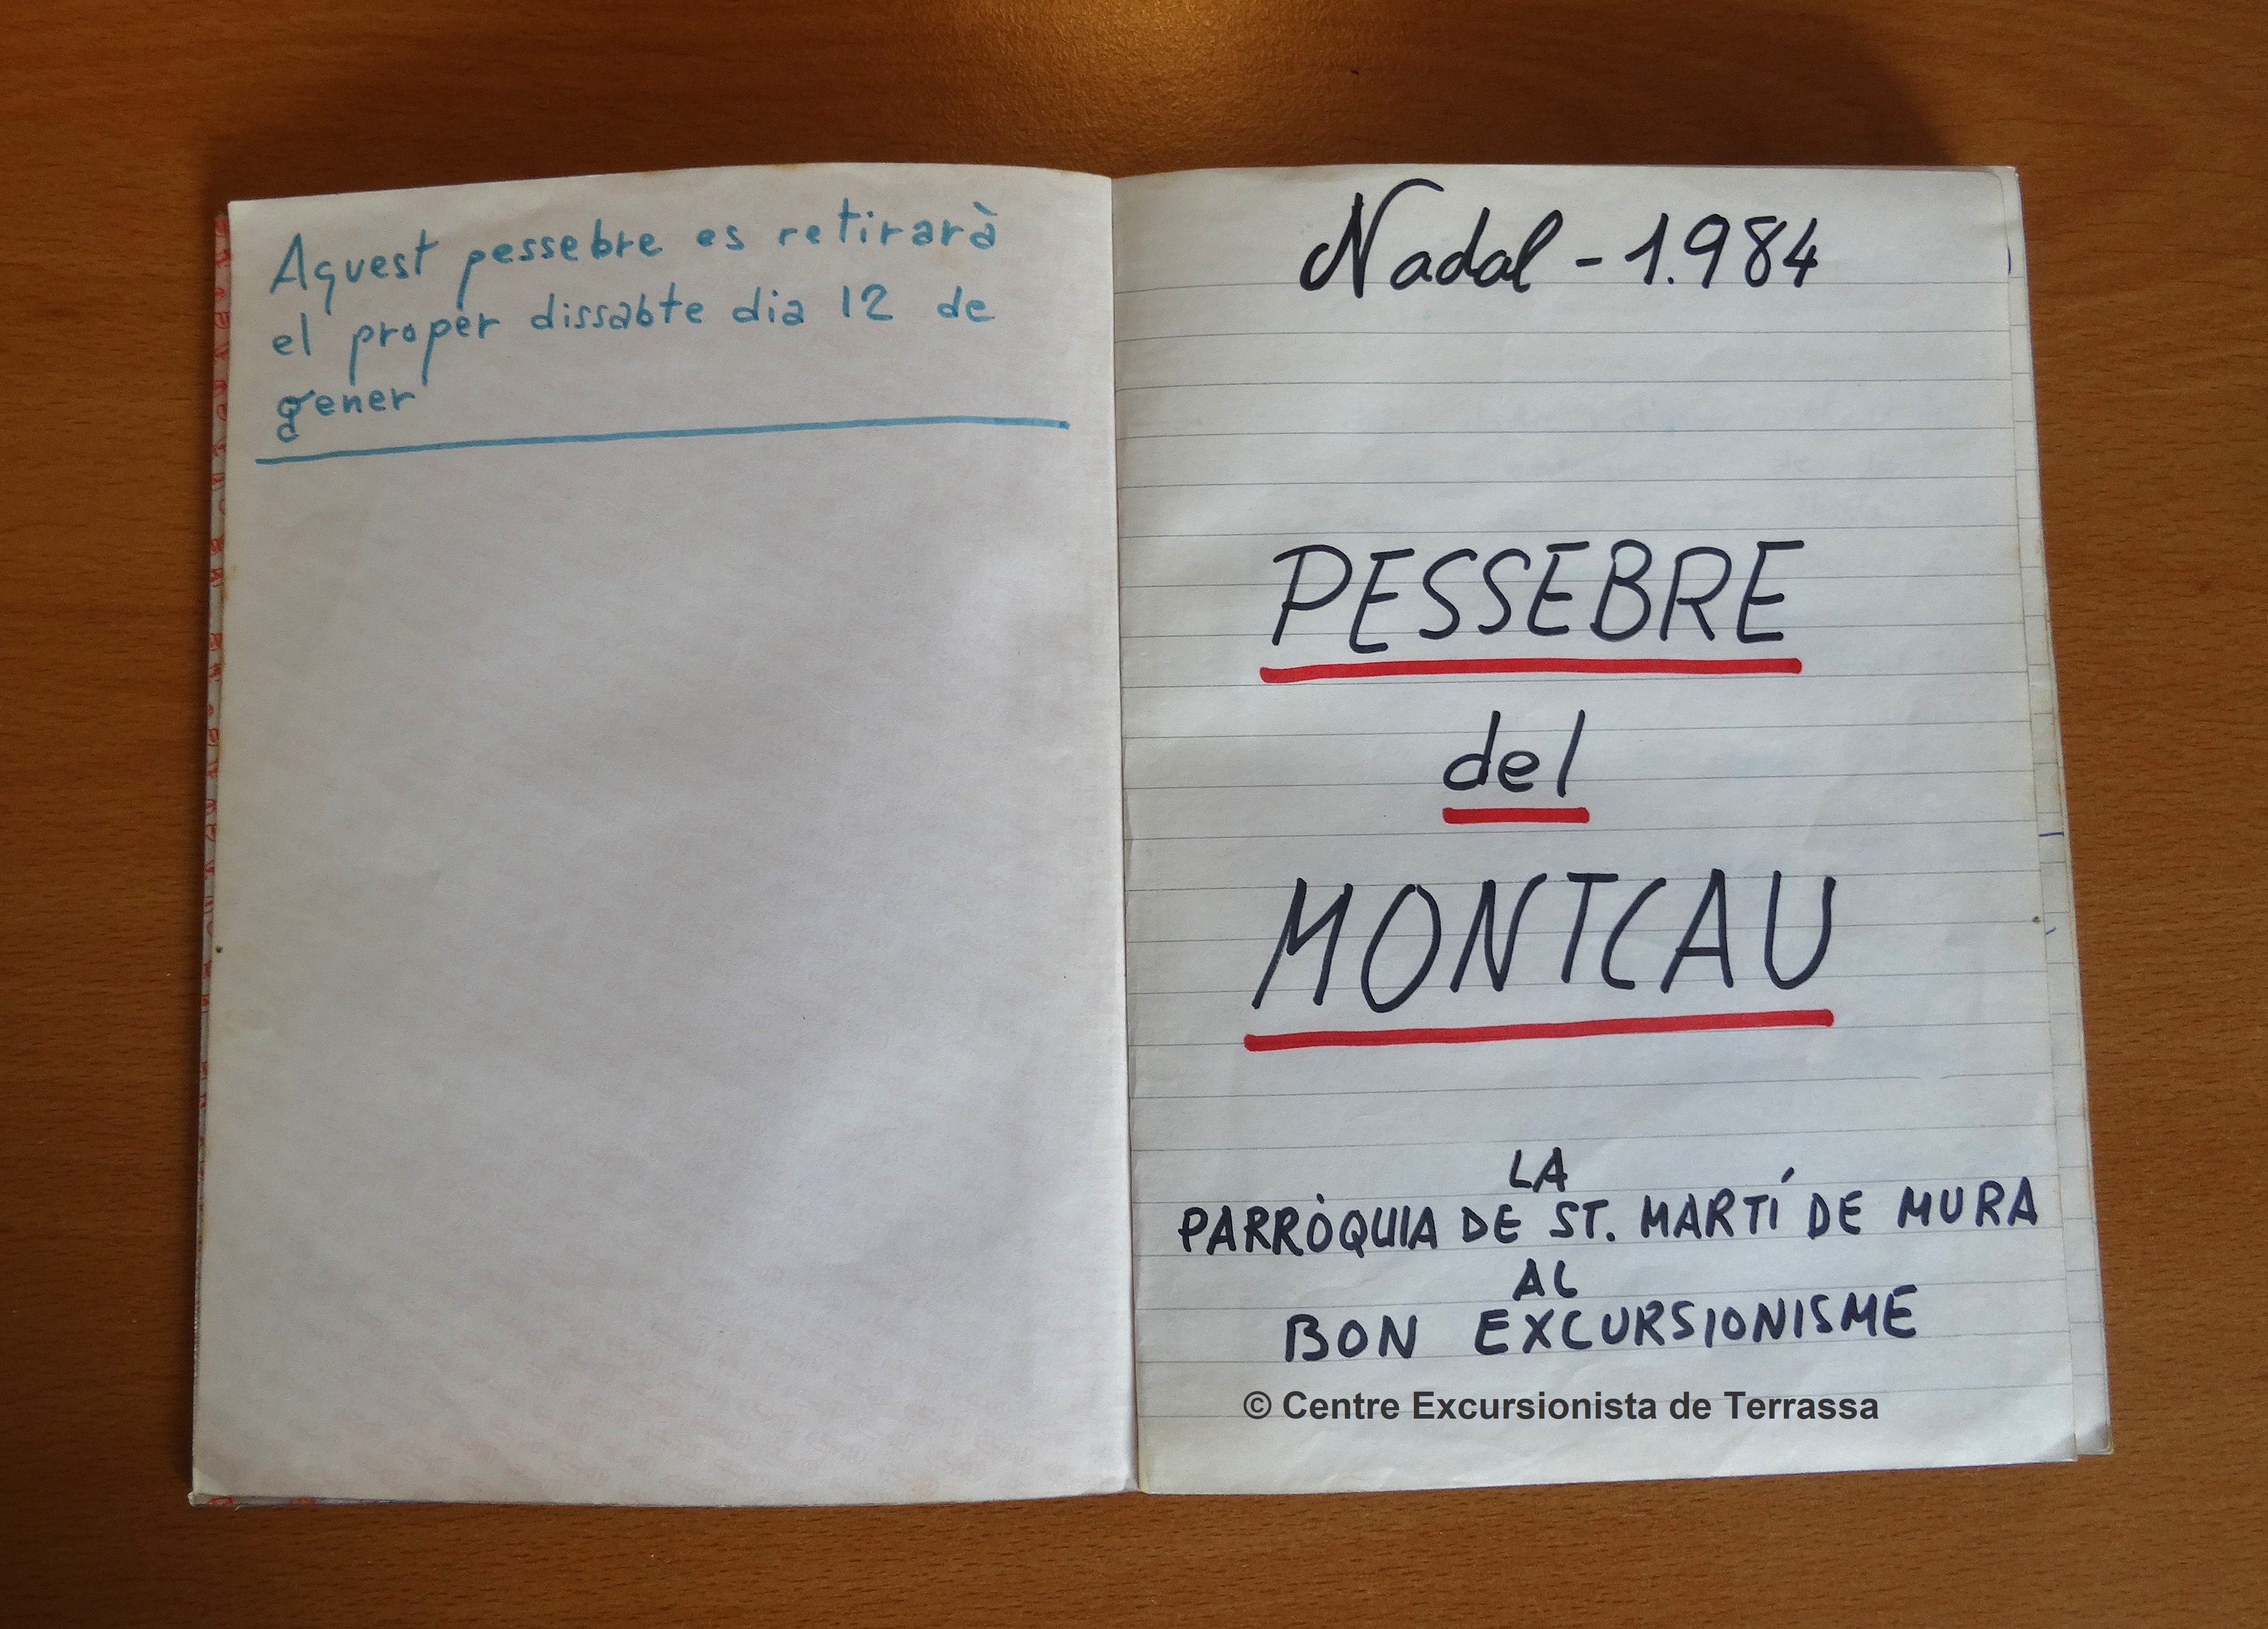 Aquest pessebre es retirarà
el proper dissabte dia 12 de
gener
Nadal - 1.984
PESSEBRE
del
MONTCAU
LA
PARRÒQUIA DE ST. MARTÍ DE MURA
AL
BON EXCURSIONISME
© Centre Excursionista de Terrassa